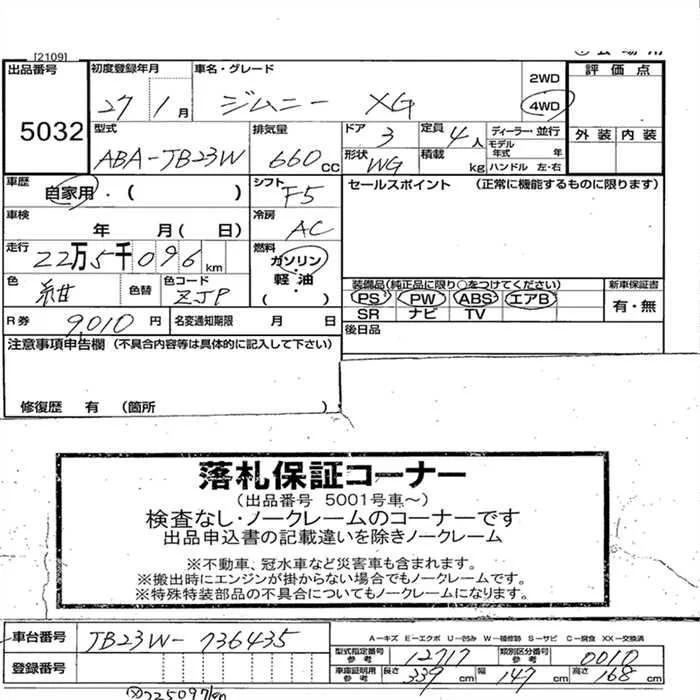 [2109]
出品番号 5032
初度登録年月 27 1月
車名・グレード ジムニー XG
2WD
4WD
評価点
外装 内装
型式 ABA-JB23W
排気量 660cc
ドア 3
定員 4人
ディーラー・並行
モデル年式 年
形状 WG
積載 kg
ハンドル 左・右
車歴 自家用・( )
シフト F5
セールスポイント (正常に機能するものに限ります)
車検 年 月( 日)
冷房 AC
走行 22万5千096km
燃料 ガソリン・軽油・( )
色 紺
色替
色コード ZJP
装備品(純正品に限り○をつけてください)
PS PW ABS エアB
SR ナビ TV
新車保証書
有・無
R券 9,010円
名変通知期限 月 日
後日品
注意事項申告欄 (不具合内容等は具体的に記入して下さい)
修復歴 有 (箇所 )
落札保証コーナー
(出品番号 5001号車~)
検査なし・ノークレームのコーナーです
出品申込書の記載違いを除きノークレーム
※不動車、冠水車など災害車も含まれます。
※搬出時にエンジンが掛からない場合でもノークレームです。
※特殊特装部品の不具合についてもノークレームになります。
車台番号 JB23W-736435
A-キズ E-エクボ U-凹み W-補修跡 S-サビ C-腐食 XX-交換済
型式指定番号 参考 12717
類別区分番号 参考 0010
登録番号
車庫証明用 参考 長さ 339cm 幅 147cm 高さ 168cm
225097km